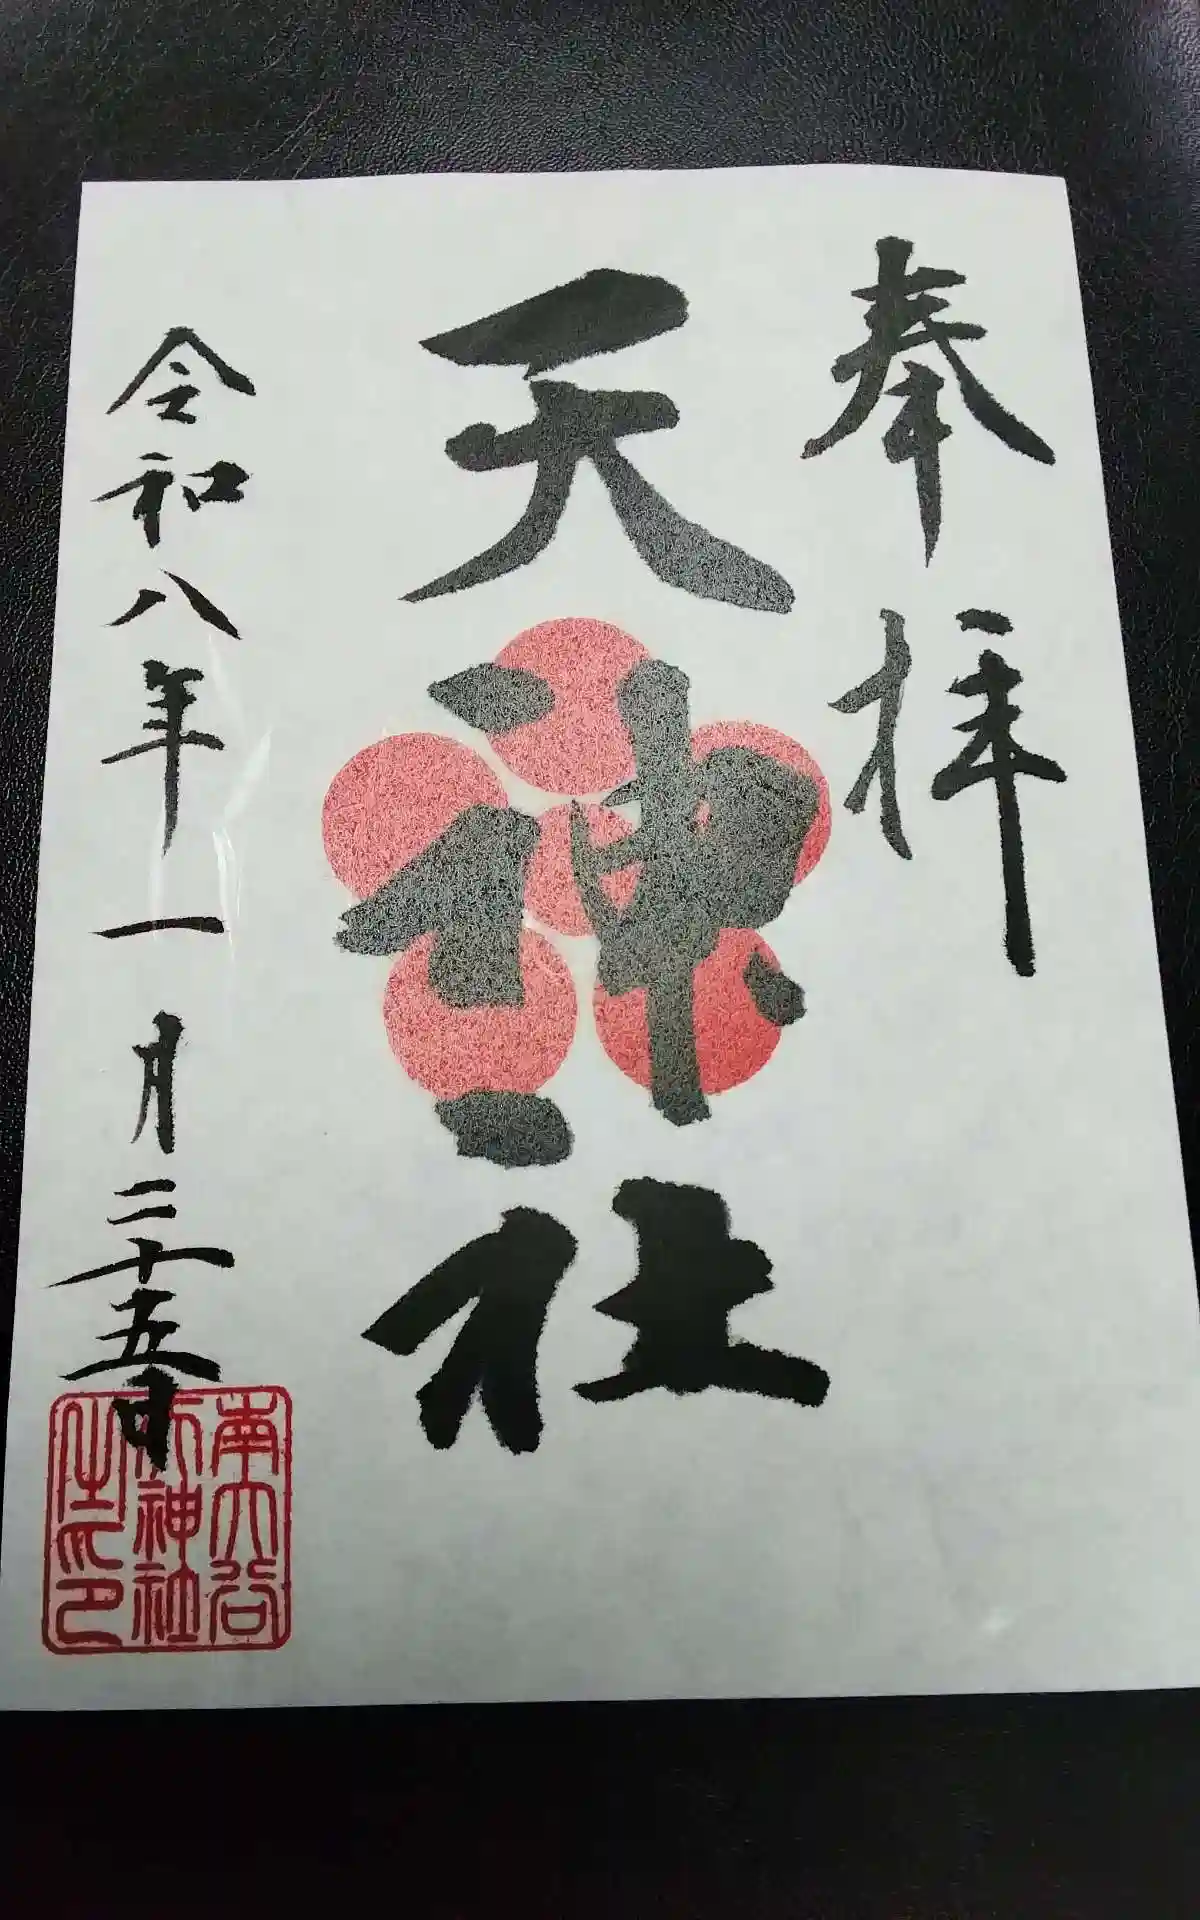 奉拝
天神社
令和八年一月二十五日
南大谷
天神社
之印